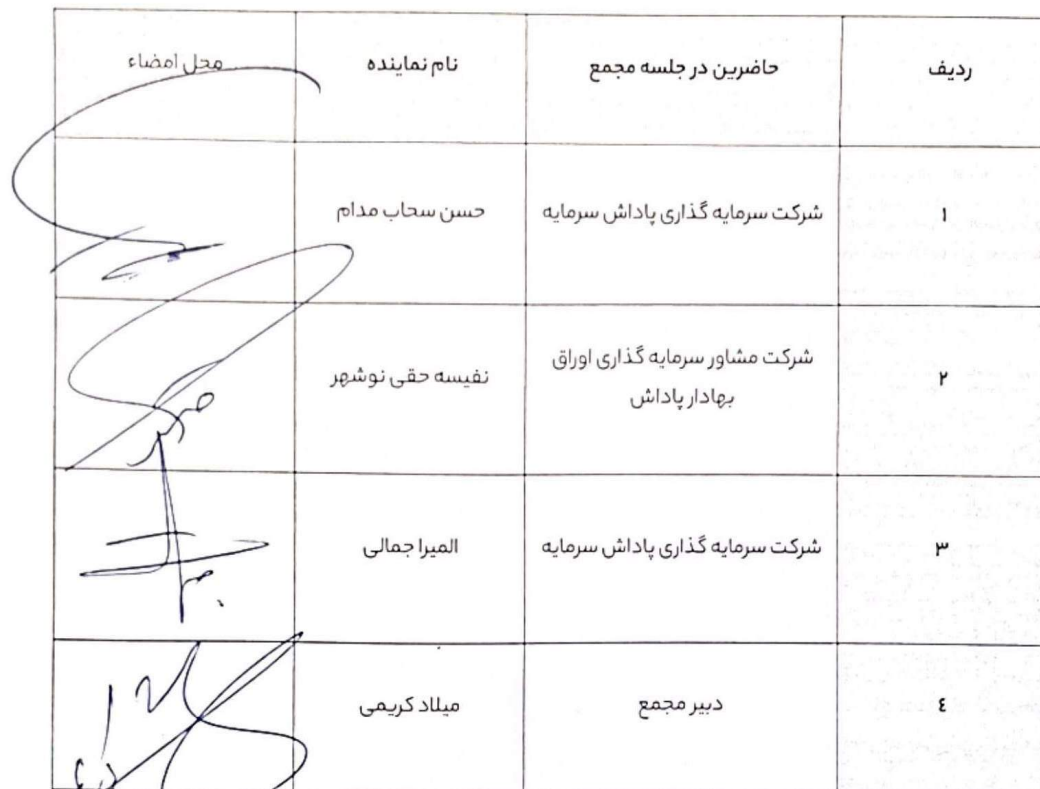 ردیف حاضرین در جلسه مجمع نام نماینده محل امضاء
۱ شرکت سرمایه گذاری پاداش سرمایه حسن سحاب مدام
۲ شرکت مشاور سرمایه گذاری اوراق بهادار پاداش نفیسه حقی نوشهر
۳ شرکت سرمایه گذاری پاداش سرمایه المیرا جمالی
٤ دبیر مجمع میلاد کریمی